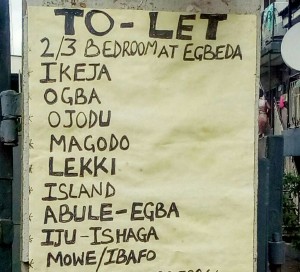 TO-LET
2/3 BEDROOM AT EGBEDA
IKEJA
OGBA
OJODU
MAGODO
LEKKI
ISLAND
ABULE-EGBA
IJU-ISHAGA
MOWE/IBAFO